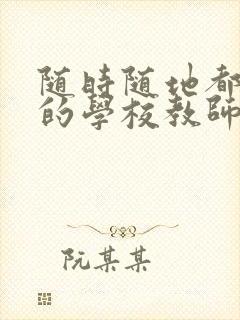 随時随地都
的學校教師
阮某某